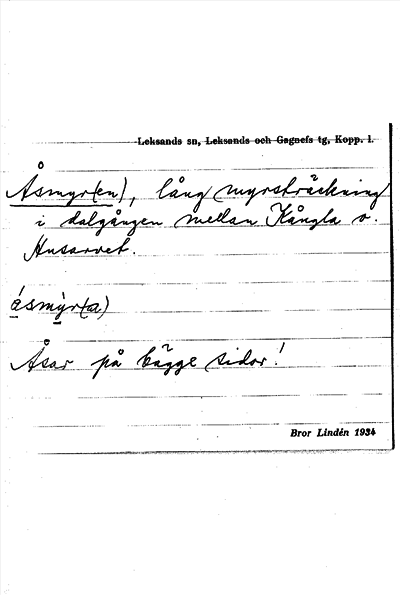 Leksands sn, Leksands och Gagnefs tg, Kopp. l.
Åsmyr(en), lång myrsträckning
i dalgången mellan Kångla o.
Husarvet.
åsmỳr(a)
Åsar på bägge sidor!
Bror Lindén 1934